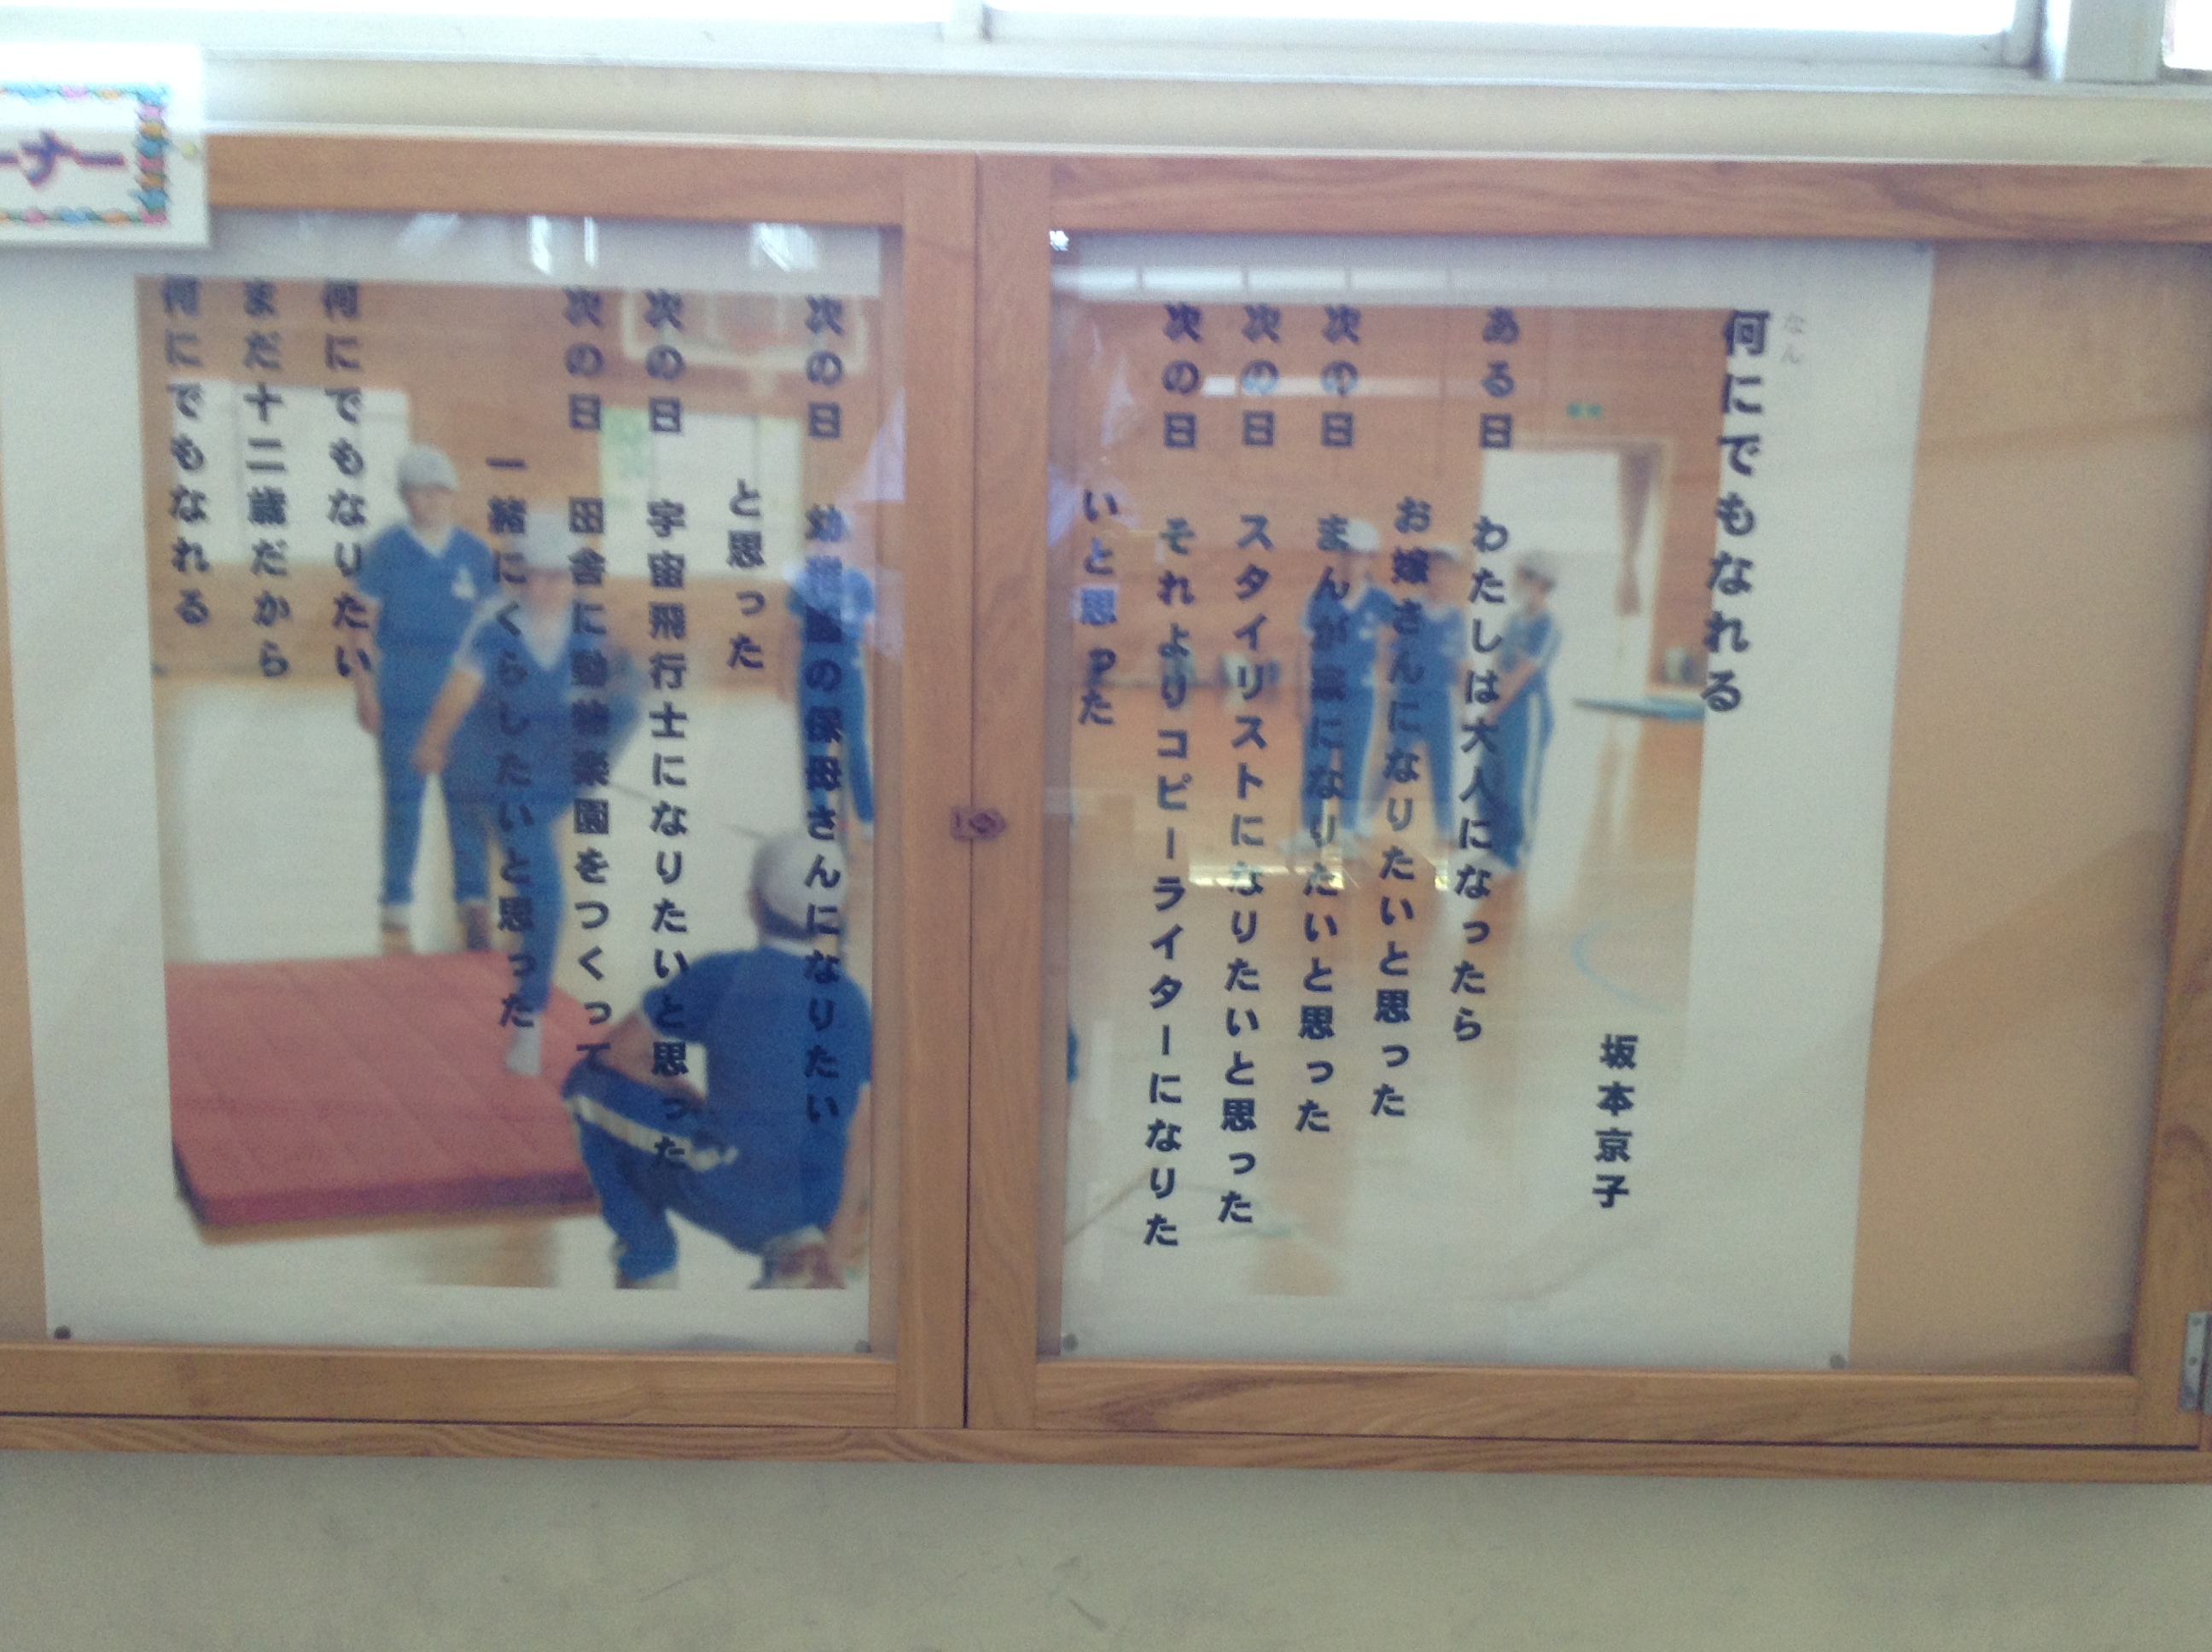 なん
何にでもなれる
坂本京子
ある日　わたしは大人になったら
お嫁さんになりたいと思った
次の日　まんが家になりたいと思った
次の日　スタイリストになりたいと思った
次の日　それよりコピーライターになりた
いと思った
次の日　幼稚園の保母さんになりたい
と思った
次の日　宇宙飛行士になりたいと思った
次の日　田舎に動物楽園をつくって
一緒にくらしたいと思った
何にでもなりたい
まだ十二歳だから
何にでもなれる
ーナー